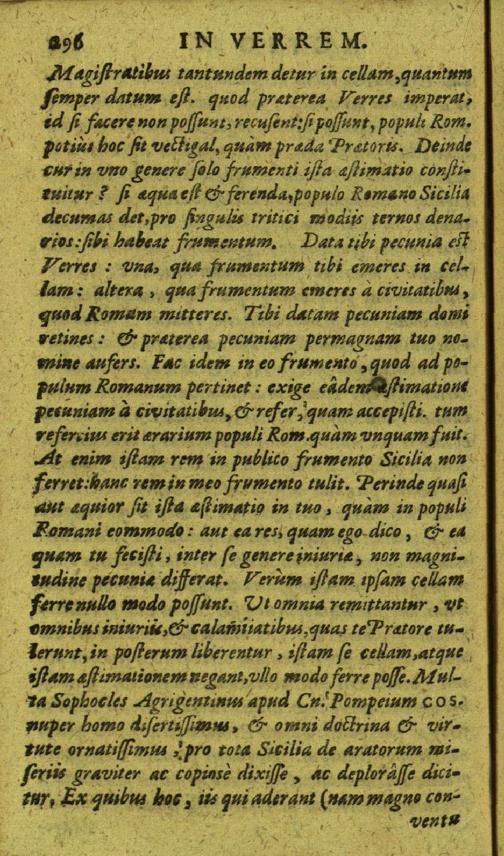 296 IN VERREM.
Magiſtratibus tantundem detur in cellam, quantum
ſemper datum eſt. quod præterea Verres imperat,
id ſi facere non poſſunt, recuſent: ſi poſſunt, populi Rom.
potius hoc ſit vectigal, quam præda Prætoris. Deinde
cur in vno genere ſolo frumenti iſta æſtimatio conſti-
tuitur? ſi æqua eſt & ferenda, populo Romano Sicilia
decumas det, pro ſingulis tritici modiis ternos dena-
rios: ſibi habeat frumentum. Data tibi pecunia eſt
Verres: vna, qua frumentum tibi emeres in cel-
lam: altera, qua frumentum emeres à civitatibus,
quod Romam mitteres. Tibi datam pecuniam domi
retines: & præterea pecuniam permagnam tuo no-
mine aufers. Fac idem in eo frumento, quod ad po-
pulum Romanum pertinet: exige eâdem æſtimatione
pecuniam à civitatibus, & refer, quam accepiſti. tum
refercius erit ærarium populi Rom. quàm vnquam fuit.
At enim iſtam rem in publico frumento Sicilia non
ferret: hanc rem in meo frumento tulit. Perinde quaſi
aut æquior ſit iſta æſtimatio in tuo, quàm in populi
Romani eommodo: aut ea res, quam ego dico, & ea
quam tu feciſti, inter ſe genere iniuriæ, non magni-
tudine pecuniæ differat. Verùm iſtam ipſam cellam
ferre nullo modo poſſunt. Vt omnia remittantur, vt
omnibus iniuriis, & calamiiatibus, quas te Prætore tu-
lerunt, in poſterum liberentur, iſtam ſe cellam, atque
iſtam æſtimationem negant, vllo modo ferre poſſe. Mul-
ta Sophocles Agrigentinus apud Cn. Pompeium COS.
nuper homo diſertiſſimus, & omni doctrina & vir-
tute ornatiſſimus, pro tota Sicilia de aratorum mi-
ſeriis graviter ac copinsè dixiſſe, ac deplorâſſe dici-
tur, Ex quibus hoc, iis qui aderant (nam magno con-
ventu